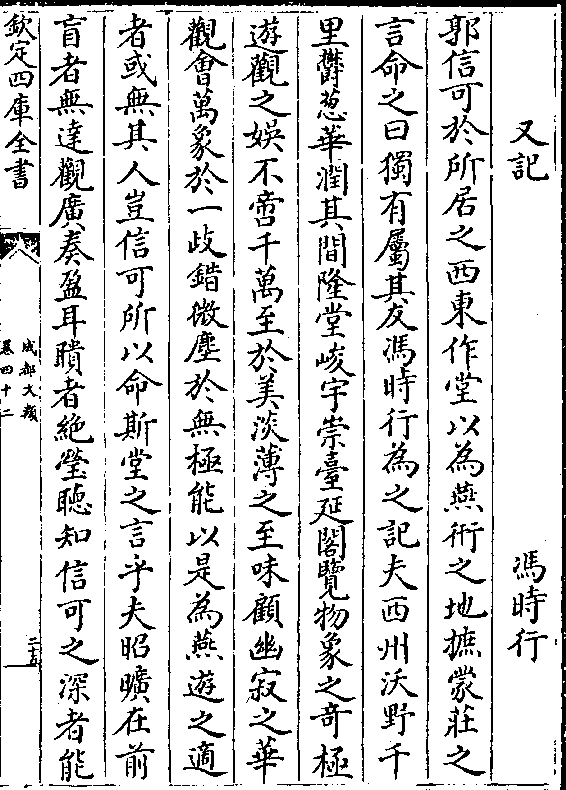 又記
馮時行
郭信可於所居之西東作堂以為燕衎之地摭蒙莊之
言命之曰獨有屬其友馮時行為之記夫西州沃野千
里欎葱華潤其間隆堂峻宇崇臺延閣覽物象之竒極
遊觀之娯不啻千萬至於美淡薄之至味顧幽寂之華
觀會萬象於一歧錯微塵於無極能以是為燕遊之適
者或無其人豈信可所以命斯堂之言乎夫昭曠在前
盲者無達觀廣奏盈耳聵者絶瑩聽知信可之深者能
欽定四庫全書
成都文類
卷四十二
二十五